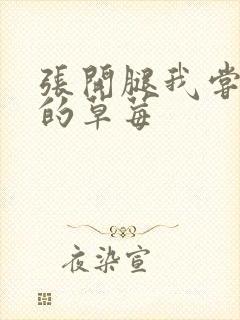 張開腿我嘗
的草莓
夜染宣